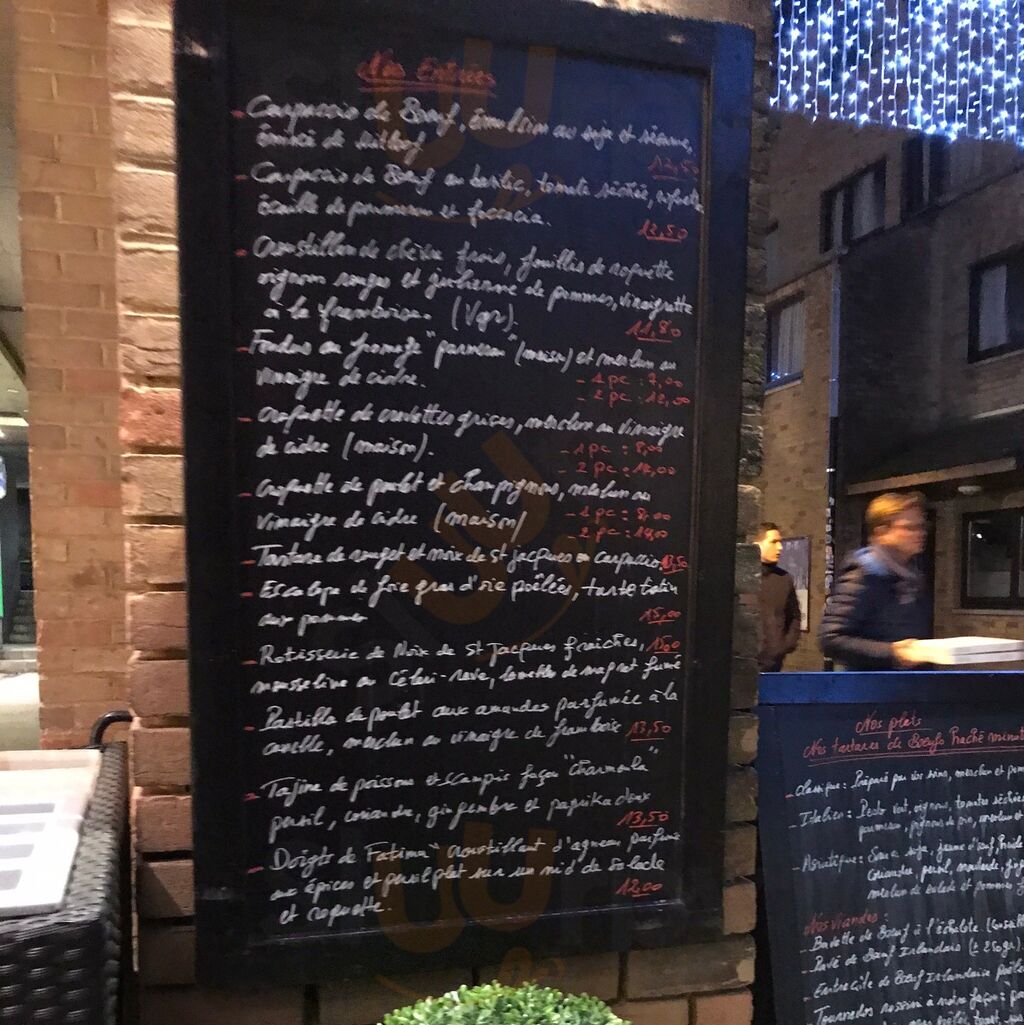 Nos Entrées
- Carpaccio de Boeuf, émulsion au soja et sésame,
émincé de
12,50
- Carpaccio de Boeuf au basilic, tomate séchée, roquette
écaille de parmesan et foccacia.
13,50
- Croustillon de chèvre frais, fouillis de roquette
oignons rouges et julienne de pommes, vinaigrette
à la framboise. (Vgr).
11,80
- Fondus au fromage "parmesan" (maison) et mesclun au
vinaigre de cidre.
- 1 pc : 7,00
- 2 pc : 12,00
- Croquette de crevettes grises, mesclun au vinaigre
de cidre (maison).
- 1 pc : 8,00
- 2 pc : 14,00
- Croquette de poulet et champignons, mesclun au
vinaigre de cidre (maison)
- 1 pc : 8,00
- 2 pc : 14,00
- Tartare de rouget et noix de st jacques en carpaccio. 13,50
- Escalope de foie gras d'oie poêlées, tarte tatin
aux pommes
15,00
- Rotisserie de Noix de St Jacques fraîches, 15,00
mousseline au Céleri-rave, lamelles de magret fumé
- Pastilla de poulet aux amandes parfumée à la
canelle, mesclun au vinaigre de framboise 13,50
- Tajine de poisson et scampis façon "charmoula"
persil, coriandre, gingembre et paprika doux
13,50
- Doigts de Fatima" croustillant d'agneau parfumé
aux épices et persil plat sur un nid de salade
et roquette.
12,00
Nos plats
Nos tartares de Boeufs haché minute
- Classique : Préparé par vos soins, mesclun et pom
- Italien : Pesto vert, oignons, tomates séchées
parmesan, pignons de pin, mesclun et
- Asiatique : Sauce soja, jaune d'oeuf, huile
Coriandre, persil, moutarde, gin
mesclun de salade et pommes
Nos viandes :
- Bavette de Boeuf à l'échalote.
- Pavé de Boeuf Irlandais (± 250gr)
- Entrecôte de Boeuf Irlandaise poêlée
- Tournedos rossini à notre façon : pa